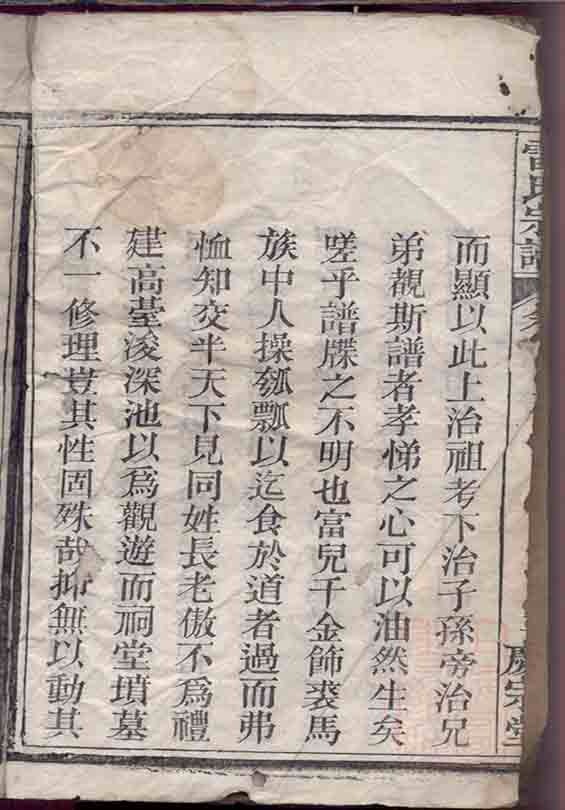 雷氏宗譜
慶宗堂
而顯以此上治祖考下治子孫旁治兄
弟觀斯譜者孝悌之心可以油然生矣
嗟乎譜牒之不明也富兒千金飾裘馬
族中人操瓠瓢以迄食於道者過而弗
恤知交半天下見同姓長老傲不爲禮
建高臺浚深池以爲觀遊而祠堂墳墓
不一修理豈其性固殊哉抑無以動其